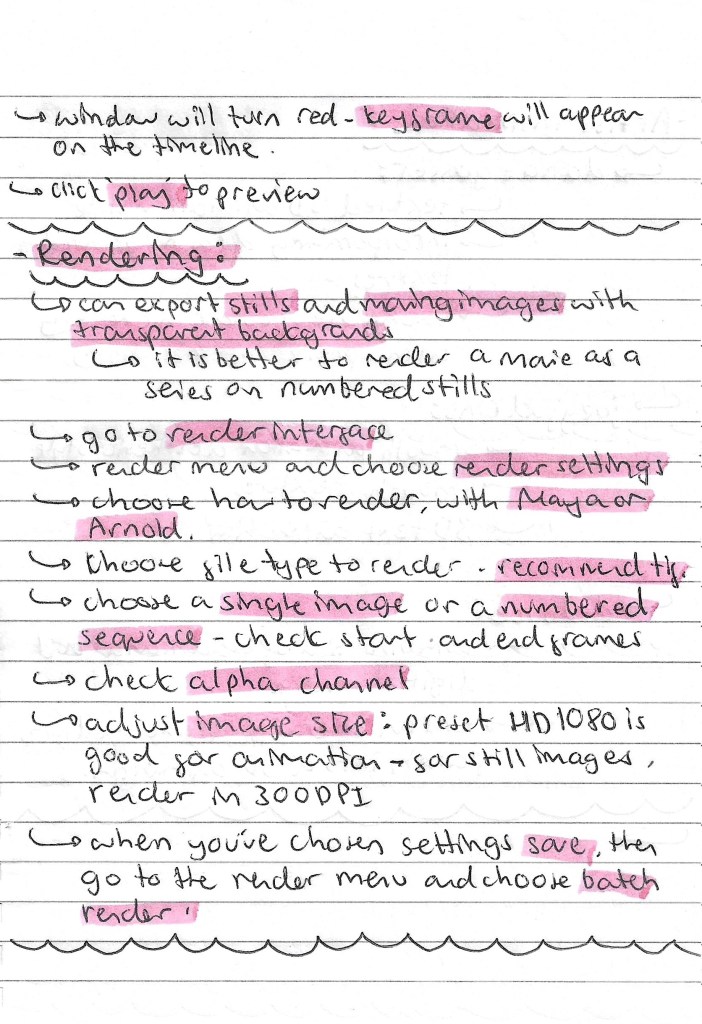 ↳ window will turn red - keyframe will appear
on the timeline.
↳ click 'play' to preview
- Rendering:
↳ can export stills and moving images with
transparent backgrounds
↳ it is better to render a movie as a
series on numbered stills
↳ go to render interface
↳ render menu and choose render settings
↳ choose how to render, with Maya or
Arnold.
↳ Choose file type to render - recommend tif.
↳ choose a single image or a numbered
sequence - check start and end frames
↳ check alpha channel
↳ adjust image size: preset HD1080 is
good for animation - for still images,
render in 300DPI
↳ when you've chosen settings save, then
go to the render menu and choose batch
render.